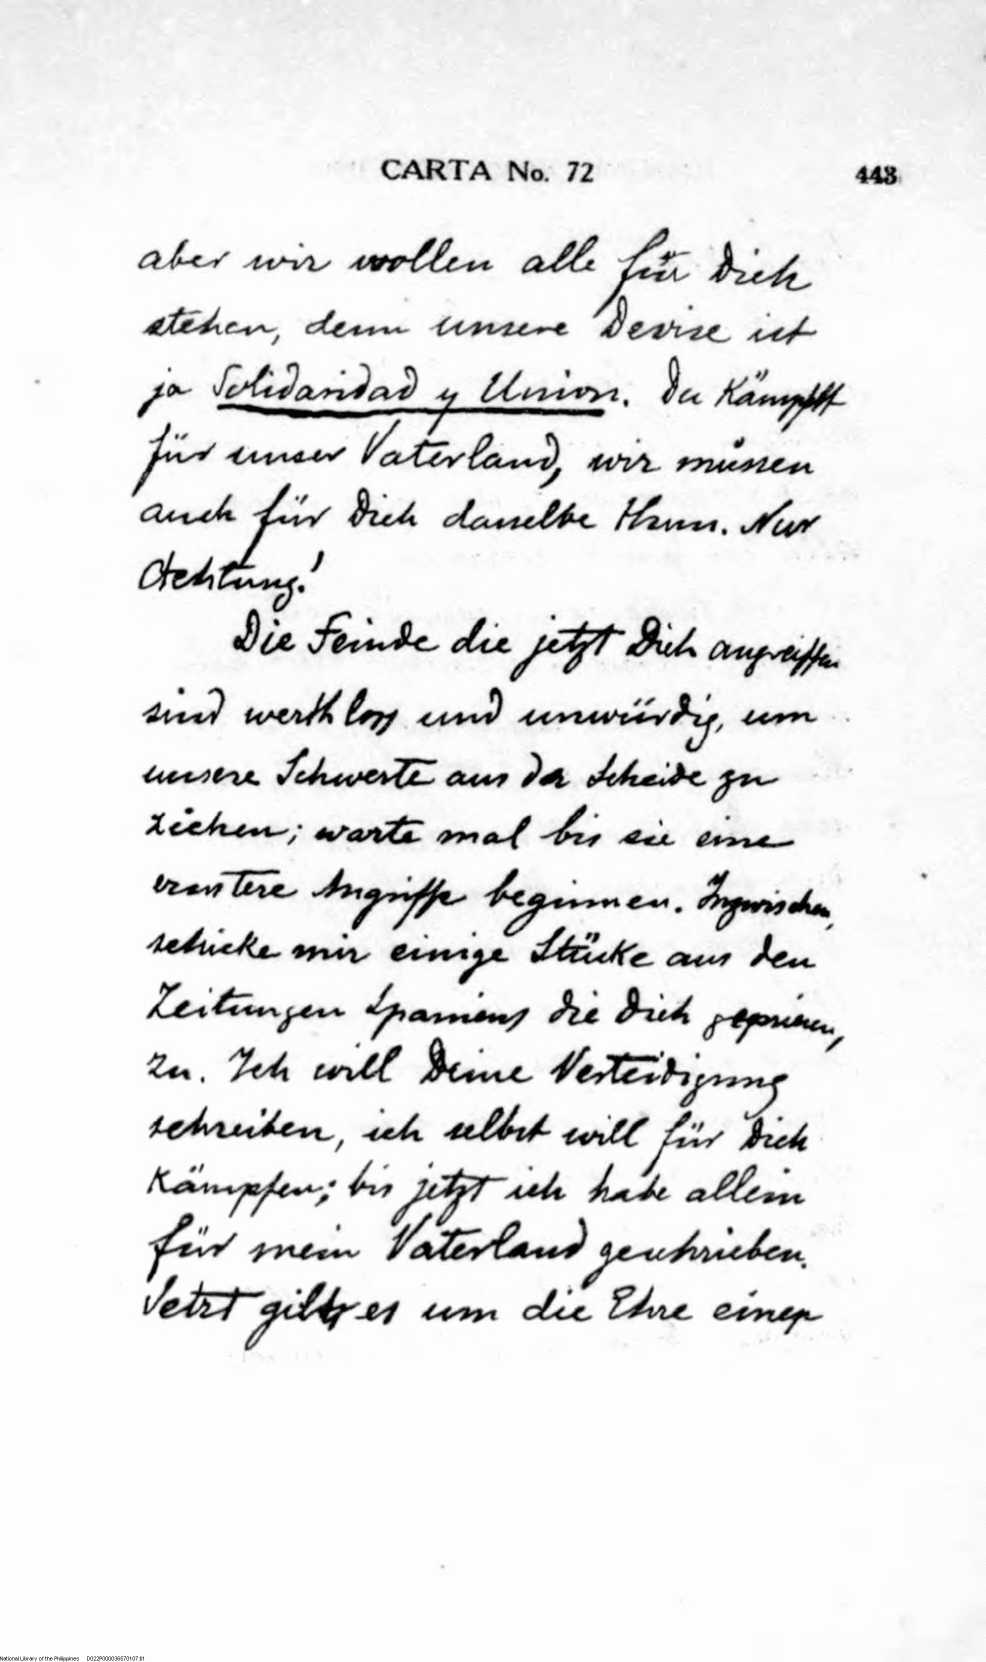 CARTA No. 72 443
aber wir wollen alle für Dich
stehen, denn unsere Devise ist
ja Solidaridad y Union. Du Kämpfst
für unser Vaterland, wir müssen
auch für Dich dasselbe thun. Nur
Achtung!
Die Feinde die jetzt Dich angreiffen
sind werthloss und unwürdig, um
unsere Schwerte aus der Scheide zu
ziehen; warte mal bis sie eine
ernstere Angriffe beginnen. Inzwischen,
schicke mir einige Stücke aus den
Zeitungen Spaniens die Dich gepriesen,
zu. Ich will Deine Verteidigung
schreiben, ich selbst will für Dich
Kämpfen; bis jetzt ich habe allein
für mein Vaterland geschrieben.
Jetzt gilts es um die Ehre eines
National Library of the Philippines